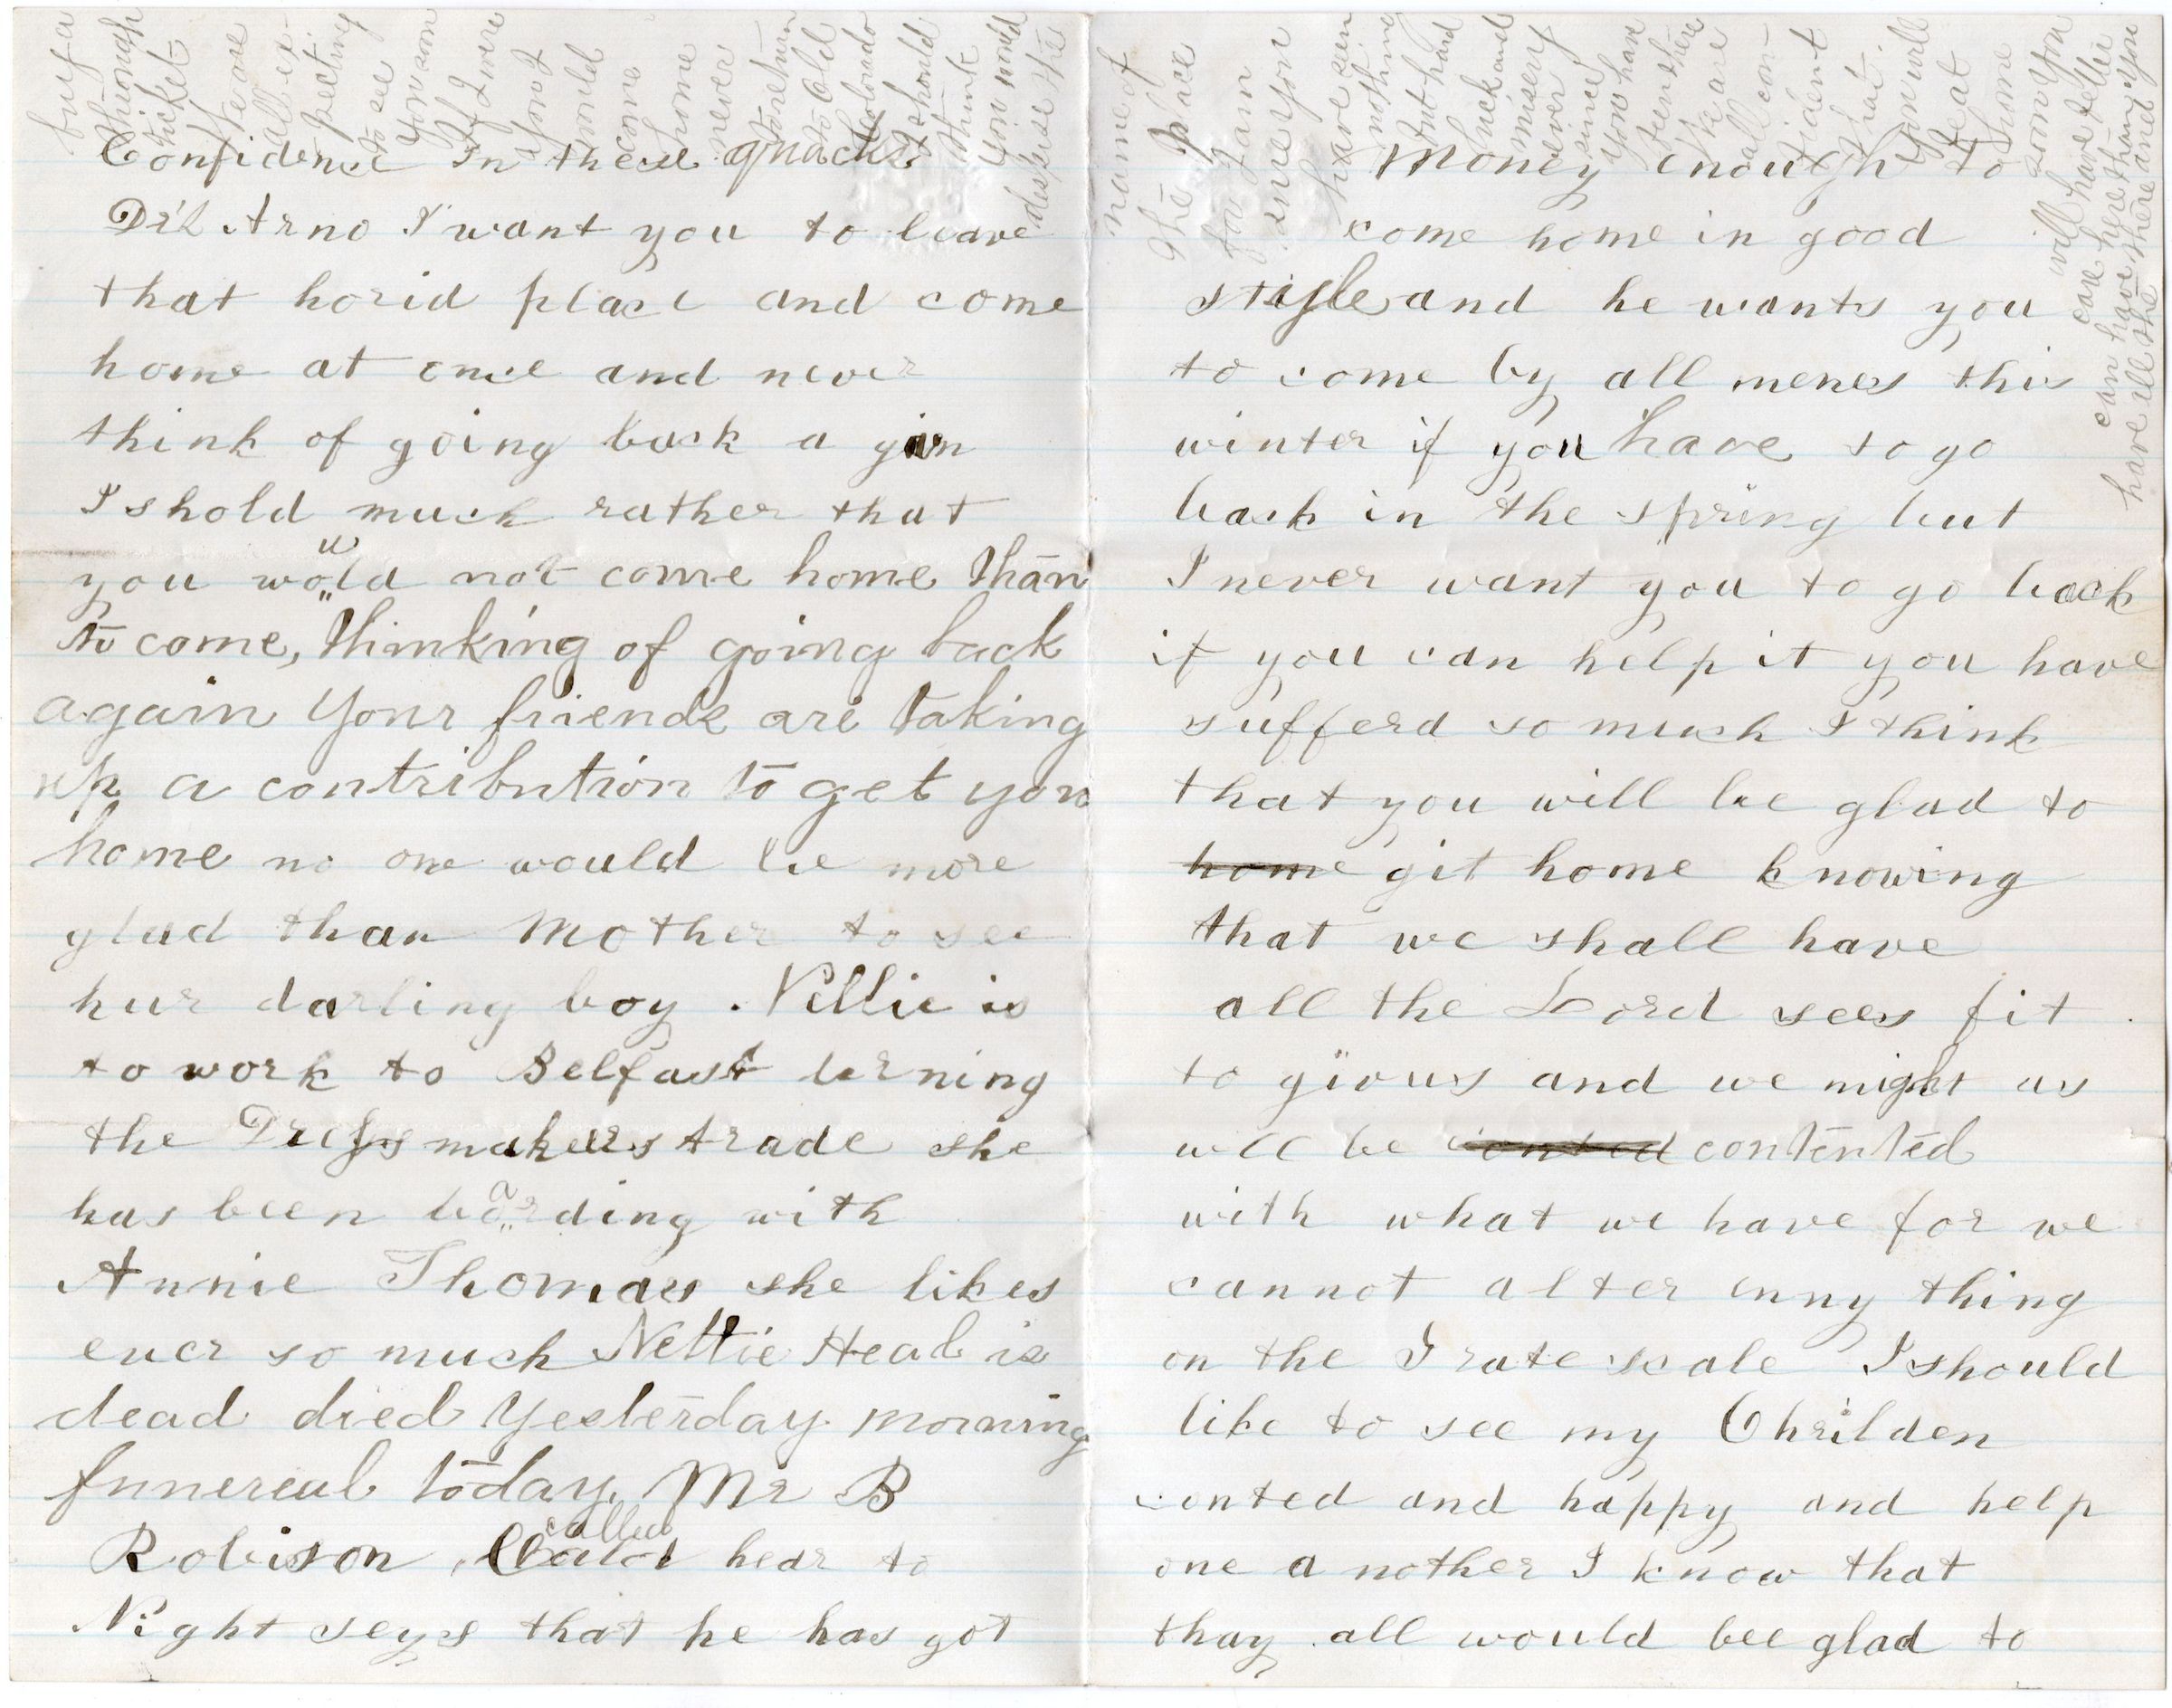 Confidence in these quacks
Dr's Arno I want you to leave
that horid place and come
home at once and never
think of going back a gin
I shold much rather that
you would not come home than
to come, thinking of going back
again Your friends are taking
up a contribution to get you
home no one would be more
glad than Mother to see
hur darling boy . Nellie is
to work to Belfast lerning
the Dress makers trade she
has been bording with
Annie Thomas she likes
ever so much Nettie Heal is
dead died Yesterday morning
funereal today, Mr B
Robison called hear to
Night seys that he has got
Money enough to
come home in good
style and he wants you
to come by all menes this
winter if you have to go
back in the spring but
I never want you to go back
if you can help it you have
sufferd so much I think
that you will be glad to
home git home knowing
that we shall have
all the Lord sees fit
to give us and we might as
well be conted contented
with what we have for we
cannot alter enny thing
on the I rate scale I should
like to see my Chrilden
conted and happy and help
one a nother I know that
thay all would bee glad to
buy a
through
ticket
We are
all ex-
pecting
to see
You soon
If I were
You I
would
come
home
never
to return
to Cold
Colorado
I should
think
You would
despise the
name of
the place
for I am
sure You
have seen
nothing
but hard
luck and
misery
ever
since
You have
been there
We are
all con-
fident
that
You will
be at
home
soon You
will have better
care here than you
can have there and you
have all the